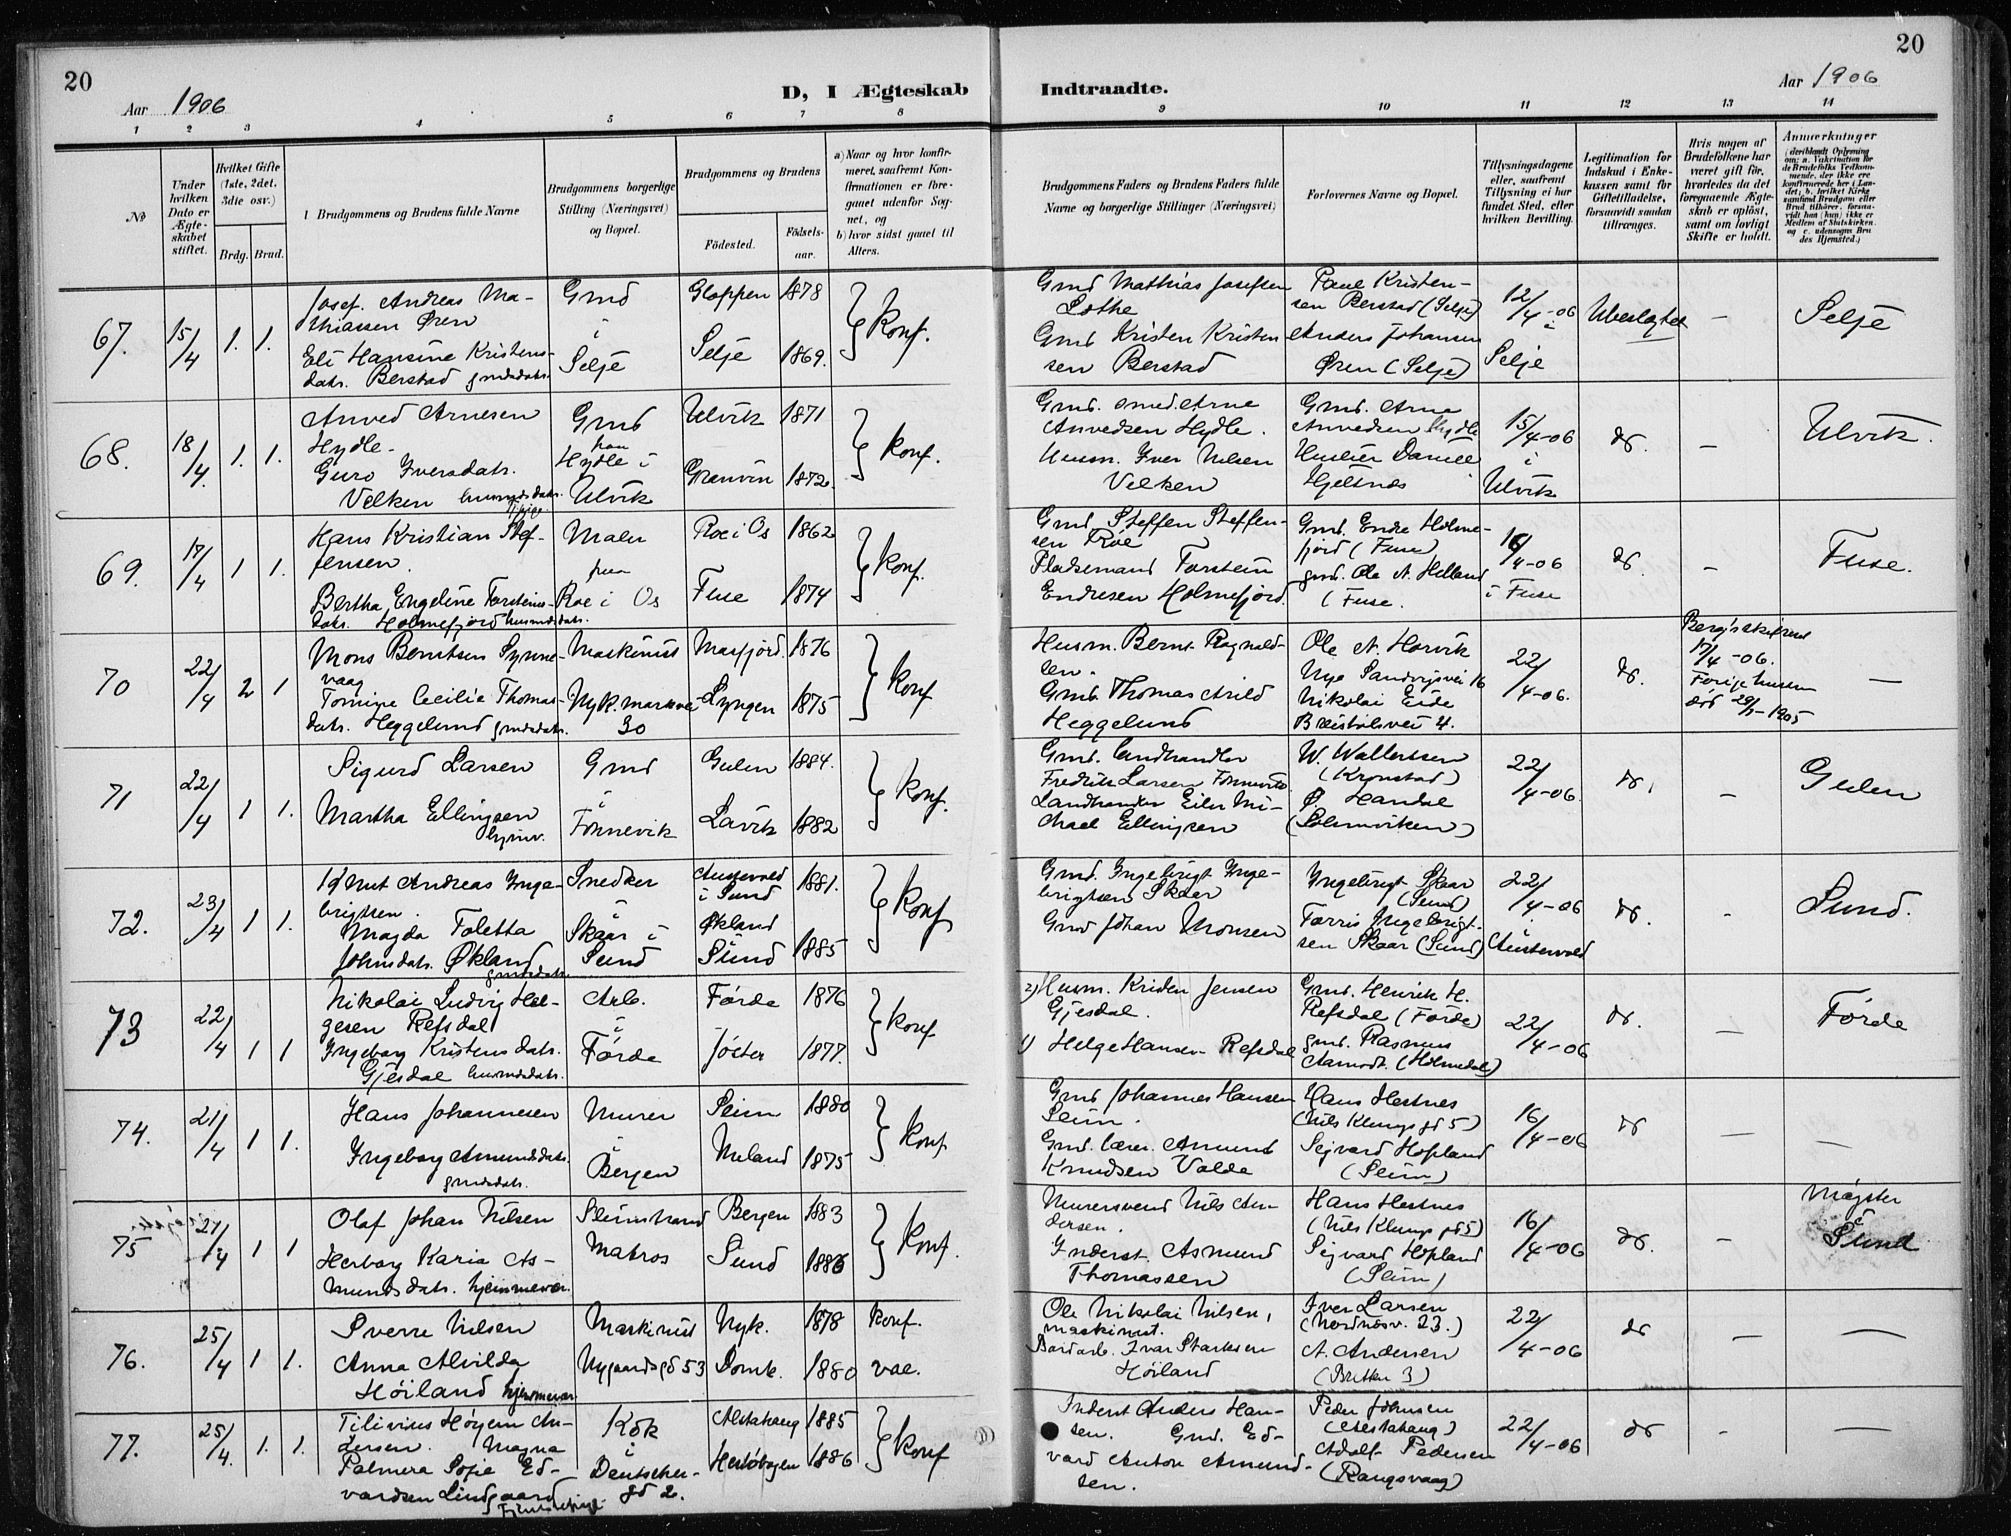 20
Aar 1906
D, I Ægteskab
Indtraadte.
Aar 1906
20
1 2 3 4 5 6 7 8 9 10 11 12 13 14
№
Under hvilken Dato er Ægteskabet stiftet.
Hvilket Gifte (1ste, 2det, 3die osv.)
Brdg. Brud.
Brudgommens og Brudens fulde Navne
Brudgommens borgerlige Stilling (Næringsvei) og Bopæl.
Brudgommens og Brudens
Fødested.
Fødselsaar.
a) Naar og hvor konfirmeret, saafremt Konfirmationen er foregaaet udenfor Sognet, og
b) hvor sidst gaaet til Alters.
Brudgommens Faders og Brudens Faders fulde Navne og borgerlige Stillinger (Næringsvei)
Forlovernes Navne og Bopæl.
Tillysningsdagene eller, saafremt Tillysning ei har fundet Sted, efter hvilken Bevilling.
Legitimation for Indskud i Enkekassen samt for Giftetilladelse, forsaavidt saadan tiltrænges.
Hvis nogen af Brudefolkene har været gift før, hvorledes da det foregaaende Ægteskab er opløst, samt om lovligt Skifte er holdt.
Anmærkninger
67. 15/4 1. 1.
Josef Andreas Mathiassen Øren
Eli Hansine Kristensdatr. Berstad gmdsdatr.
Gmd i Selje
Gloppen 1878
Selje 1869.
Konf.
Gmd Mathias Josefsen Lothe
Gmd Kristen Kristensen Berstad
Paul Kristensen Berstad (Selje)
Anders Johansen Øren (Selje)
12/4-06 i Selje
Ubeslægtet
–
Selje
68. 18/4. 1. 1.
Anved Arnesen Hydle.
Guro Iversdatr. Velken husmdsdatr.
Gmd paa Hydle i Ulvik
Ulvik 1871
Granvin 1872.
Konf.
Gmd. smed. Arne Anvedsen Hydle.
Husm. Iver Nilsen Velken
Gmd. Arne Anvedsen Hydle
Daniel Hjeltnes
15/4-06 i Ulvik
do.
–
Ulvik.
69. 17/4 1 1.
Hans Kristian Steffensen.
Bertha Engeline Torsteinsdatr. Holmefjord husmdsdatr.
Maler fra Roe i Os
Roe i Os 1862
Fuse 1874
Konf.
Gmd Steffen Steffensen Roe
Pladsemand Torstein Endresen Holmefjord
Gmd. Endre Holmefjord (Fuse)
gmd. Ole N. Helland (Fuse.
16/4-06 i Fuse
do.
–
Fuse.
70 22/4 2 1
Mons Berntsen Synnevaag
Tomine Cecilie Thomasdatr. Heggelund gmdsdatr.
Maskinist
Nyk. markvei 30
Masfjord. 1876
Lyngen 1875
Konf
Husm. Bernt Ragnaldsen.
Gmd. Thomas Arild Heggelund
Ole N. Horvik
Nye Sandvigsvei 16
Nikolai Eide
4.
22/4-06.
do.
17/4-06.
Forige hustru død 1905
—
71 22/4 1 1.
Sigurd Larsen
Martha Ellingsen
Gmd i Fonnevik
Gulen 1884.
Lavik 1882
Konf.
Gmd. landhandler Fredrik Larsen Fonnevik
Landhandler Eiler Michael Ellingsen
W. Wallertsen (Kronstad)
Ø. Handal (Solemviken)
22/4-06.
do.
–
Gulen
72. 23/4 1 1.
Knut Andreas Ingebrigtsen.
Magda Toletta Johnsdatr. Økland gmdsdatr.
Snedker
Skaar i Sund
Austevold i Sund 1881.
Økland Sund 1885
Konf
Gmd. Ingebrigt Ingebrigtsen Skaar
Gmd Johan Monsen
Ingebrigt Skaar (Sund)
Torris Ingebrigtsen Skaar (Sund)
22/4-06 i Austevold
do.
–
Sund.
73 22/4 1 1
Nikolai Ludvig Helgesen Refsdal
Ingeborg Kristensdatr. Gjesdal husmdsdatr.
Arb. i Førde
Førde 1876
Jølster 1877.
Konf
2) Husm. Kristen Jensen Gjesdal.
1) Helge Hansen Refsdal
Gmd. Henrik H. Refsdal (Førde)
gmd. Rasmus Aamodt. (Holmedal)
22/4-06
do.
–
Førde
74. 21/4 1 1.
Hans Johannesen
Ingeborg Amundsdatr. gmdsdatr.
Murer i Bergen
Seim 1880
Meland 1875
Konf
Gmd Johannes Hansen Seim.
Gmd. lærer. Amund Knudsen Valde
Hans Hestnes (Nils Klungs gd 5)
Sigvard Hopland (Seim)
16/4-06
do
–
–
75 21/4 1 1
Olaf Johan Nilsen
Herborg Karia Asmundsdatr. hjemmevær.
Matros
Bergen 1883
Sund 1886
Konf.
Murersvend Nils Andersen.
Inderst. Asmund Thomassen
Hans Hestnes (Nils Klungs gd 5)
Sigvard Hopland (Seim)
16/4-06
do.
–
Møgster i Sund
76. 25/4 1 1.
Sverre Nilsen
Anna Alvilda Høiland hjemmevær
Maskinist
Nygaardsgd 53
Nyk. 1878
Domk. 1880
Konf.
vac.
Ole Nikolai Nilsen, maskinist.
Ivar Høiland
Iver Larsen (Nordnæsv. 23.)
A. Andersen 3)
22/4-06
do
–
—
77. 25/4. 1. 1.
Tilivius Høyem Andersen.
Magna Palmera Sofie Edvardsen Lindgaard
Kok i Deutschergd 2.
Alstahaug 1885
1886
Konf
Inderst Anders Hansen.
Gmd. Edvard Anton Amundsen.
Peder Johnsen (Alstahaug)
Adolf Pedersen (Rangsvaag)
22/4-06
do
–
–